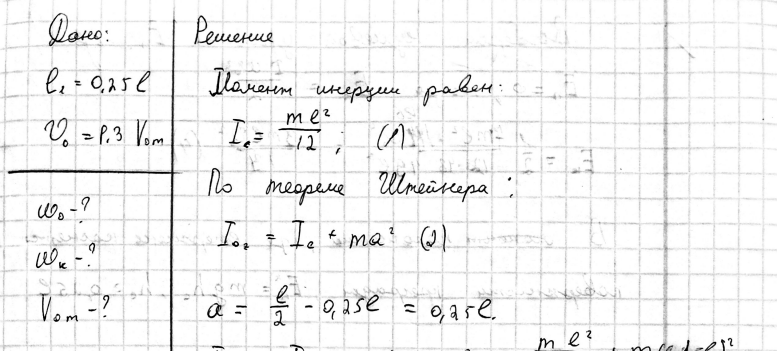 Дано:
l₂ = 0,25 l
V₀ = 1.3 Vом
ω₀ - ?
ωк - ?
Vом - ?
Решение
Момент инерции равен:
Iс = mℓ²/12; (1)
По теореме Штейнера:
I₀₂ = Iс + ma² (2)
a = ℓ/2 - 0,25ℓ = 0,25ℓ.
mℓ²